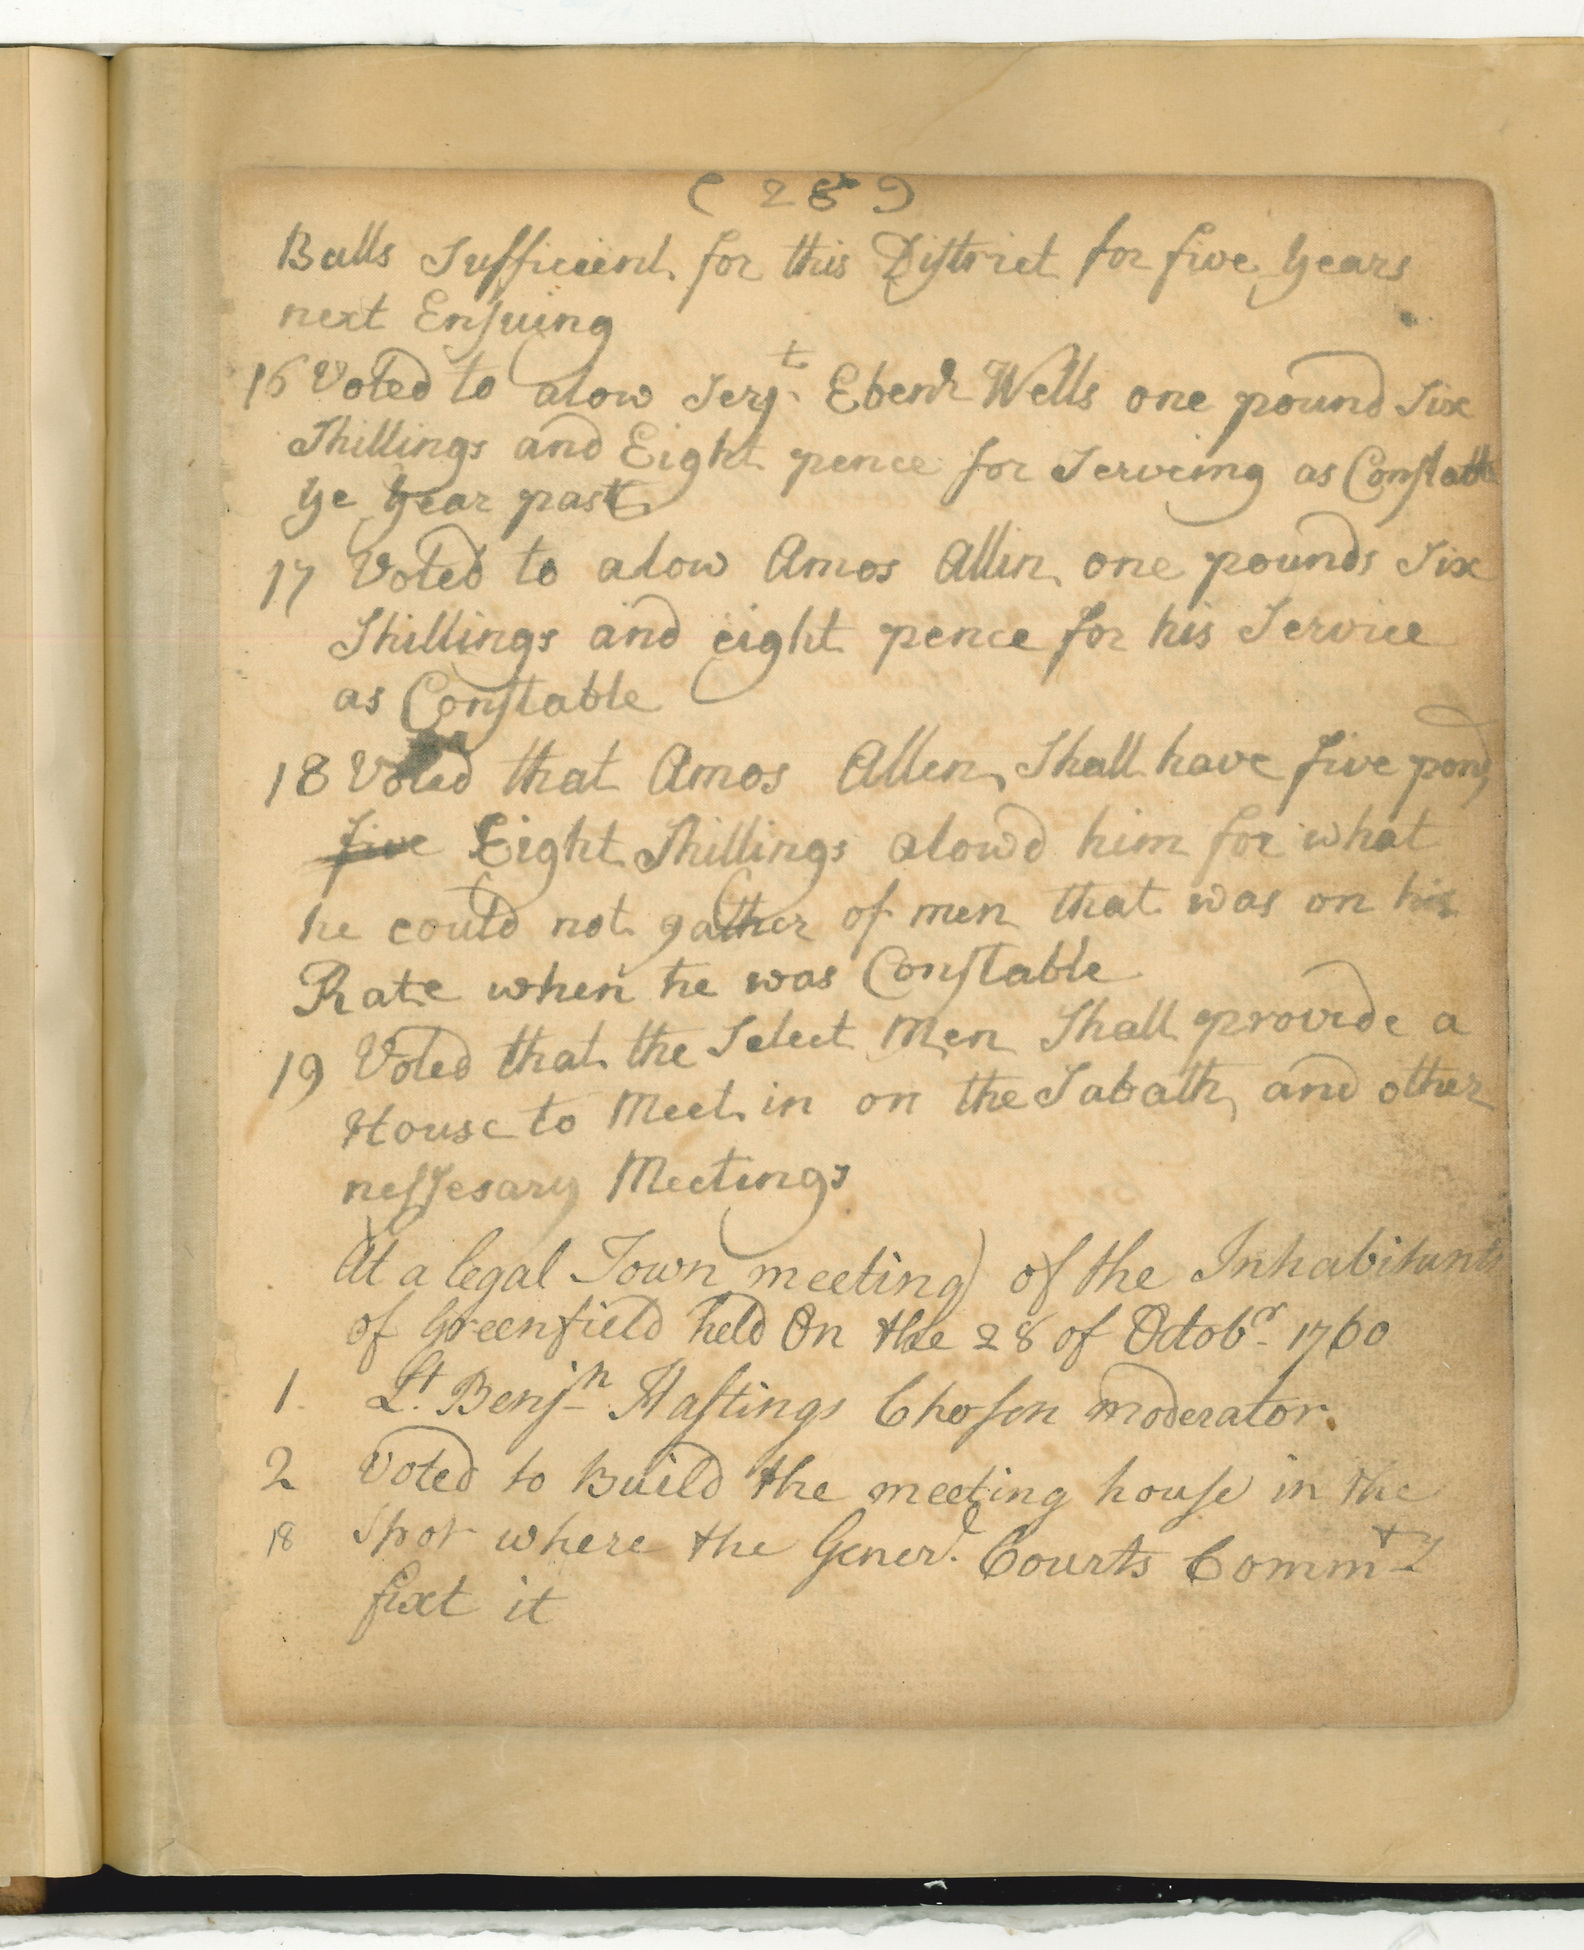 ( 28 )
Bulls Sufficient for this District for five years
next Ensuing
16 Voted to alow Serjt. Ebenr Wells one pound Six
Shillings and Eight pence for Serveing as Constable
ye year past
17 Voted to alow Amos Allin one pounds Six
Shillings and eight pence for his Service
as Constable
18 Voted that Amos Allen Shall have five pond
five Eight Shillings alowd him for what
he could not gather of men that was on his
Rate when he was Constable
19 Voted that the Select Men Shall provide a
House to Meet in on the Sabath and other
nessesary Meetings
At a legal Town meeting of the Inhabitants
of Greenfield held On the 28 of Octobr 1760
1. Lt. Benjn Hastings Chosen moderator.
2 Voted to Build the meeting house in the
18 Spot where the Generl. Courts Commtt
fixt it